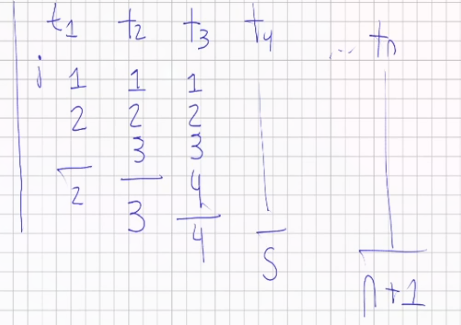 t1 t2 t3 t4 ... tn
i 1 1 1
2 2 2
3 3
4
2 3 4 5 n+1